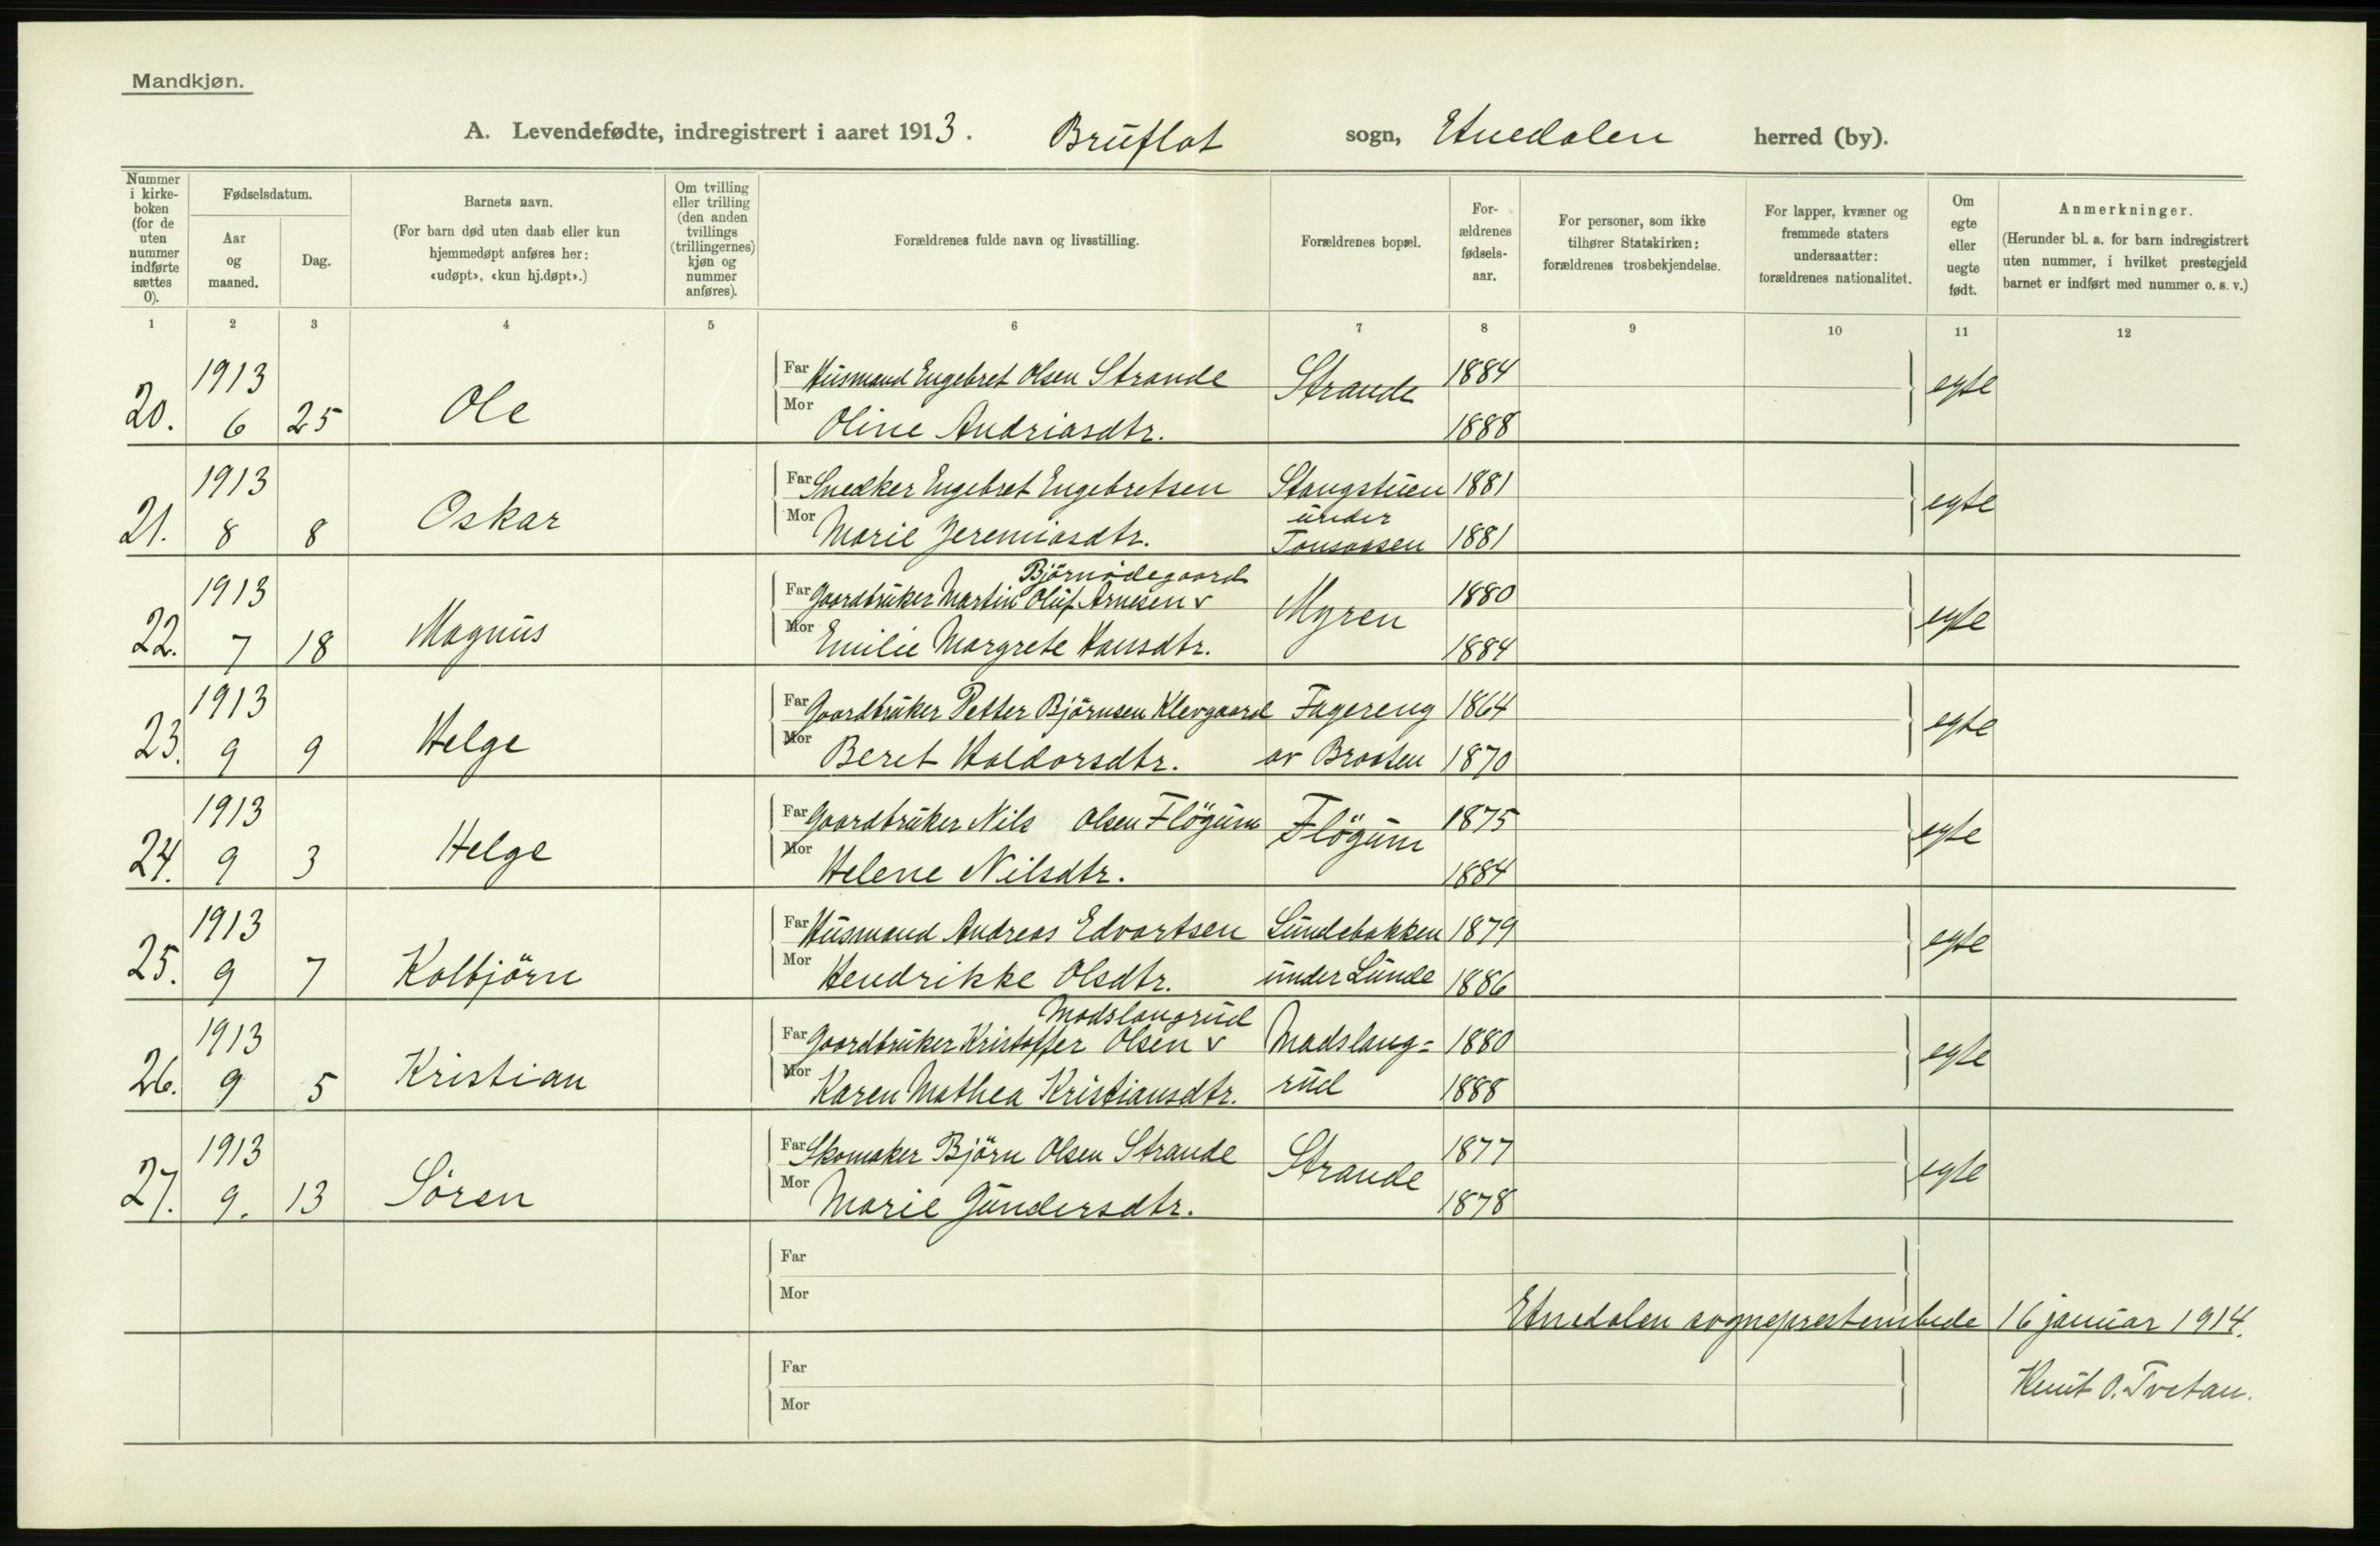 Mandkjøn.
A. Levendefødte, indregistrert i aaret 1913. Bruflat sogn, Etnedalen herred (by).
Nummer i kirkeboken (for de uten nummer indførte sættes 0).
Fødselsdatum.
Aar og maaned.
Dag.
Barnets navn.
(For barn død uten daab eller kun hjemmedøpt anføres her: «udøpt», «kun hj.døpt».)
Om tvilling eller trilling (den anden tvillings (trillingernes) kjøn og nummer anføres).
Forældrenes fulde navn og livsstilling.
Forældrenes bopæl.
Forældrenes fødselsaar.
For personer, som ikke tilhører Statskirken: forældrenes trosbekjendelse.
For lapper, kvæner og fremmede staters undersaatter: forældrenes nationalitet.
Om egte eller uegte født.
Anmerkninger.
(Herunder bl. a. for barn indregistrert uten nummer, i hvilket prestegjeld barnet er indført med nummer o. s. v.)
1 2 3 4 5 6 7 8 9 10 11 12
1913 Far Husmand Engebret Olsen Strande Strande 1884 egte
20. 6 25 Ole Mor Oline Andriasdtr. 1888
1913 Far Snedker Engebret Engebretsen Stangstuen 1881 egte
under
21. 8 8 Oskar Mor Marie Jeremiasdtr. Tonsaasen 1881
Björnødegaard
1913 Far Gaardbruker Martin Oluf Arnesen v Myren 1880 egte
22. 7 18 Magnus Mor Emilie Margrete Hansdtr. 1884
1913 Far Gaardbruker Petter Björnsen Klevgaard Fagereng 1864 egte
23. 9 9 Helge Mor Beret Haldorsdtr. av Braaten 1870
1913 Far Gaardbruker Nils Olsen Flögum Flögum 1875 egte
24. 9 3 Helge Mor Helene Nilsdtr. 1884
1913 Far Husmand Andreas Edvartsen Lundebakken 1879 egte
25. 9 7 Kolbjörn Mor Hendrikke Olsdtr. under Lunde 1886
Madslangrud
1913 Far Gaardbruker Kristoffer Olsen v Madslang= 1880 egte
26. 9 5 Kristian Mor Karen Mathea Kristiansdtr. rud 1888
1913 Far Skomaker Björn Olsen Strande Strande 1877 egte
27. 9. 13 Sören Mor Marie Gundersdtr. 1878
Far
Mor
Etnedalen sogneprestembede 16 januar 1914.
Far
Knut O. Tvetan.
Mor